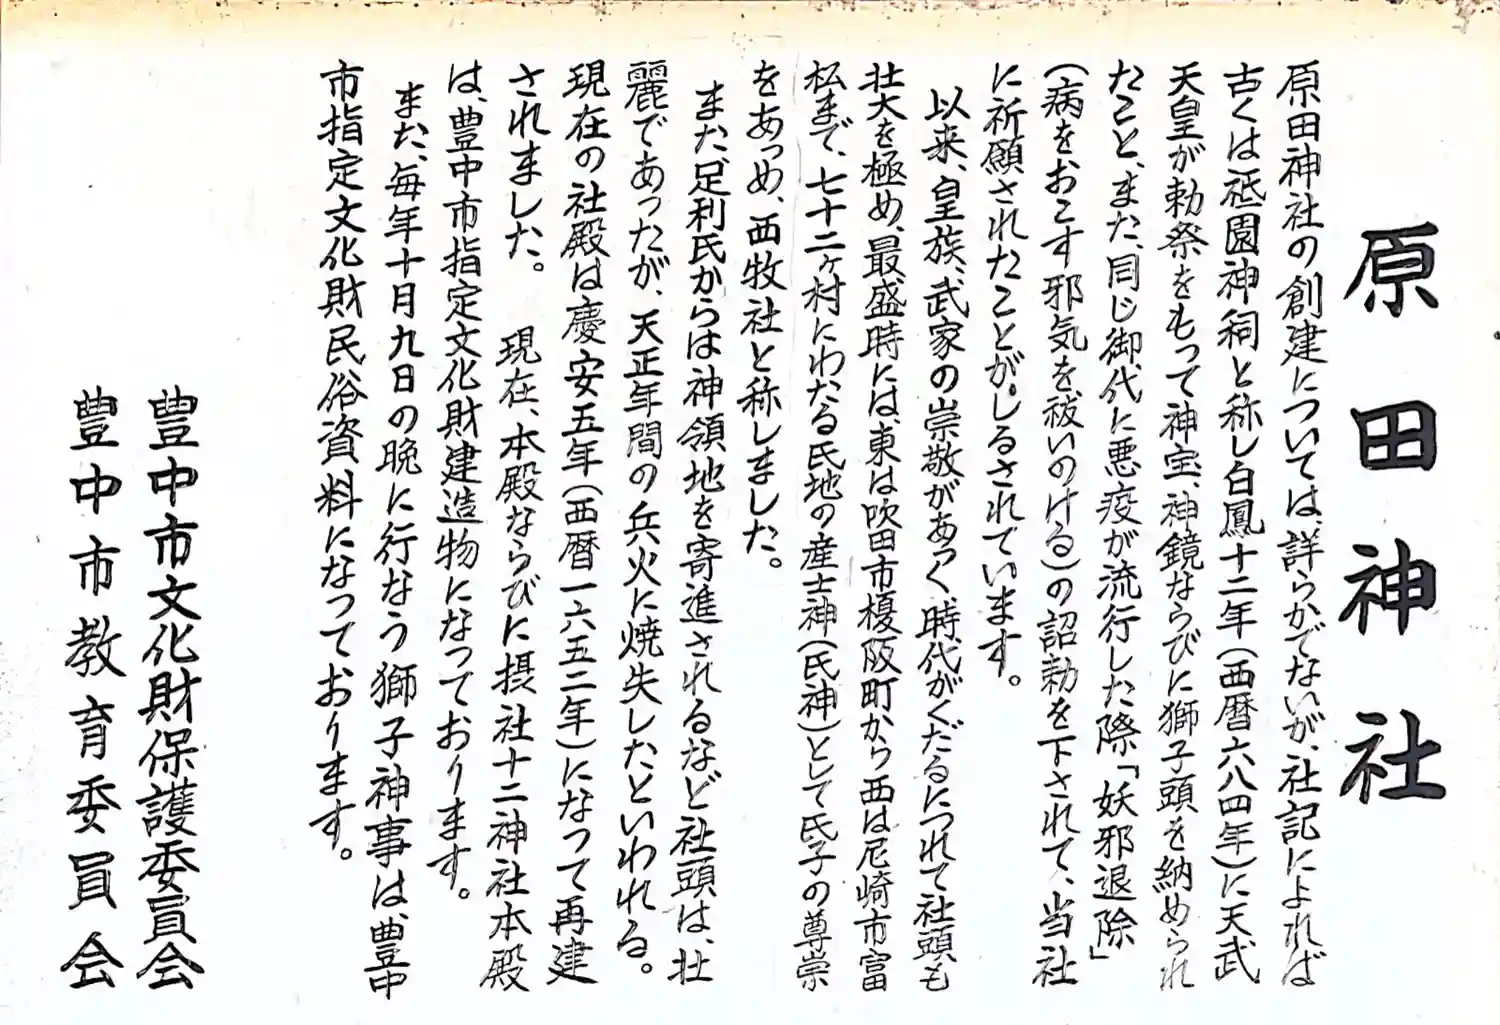 原田神社
原田神社の創建については、詳らかでないが、社記によれば
古くは祗園神祠と称し白鳳十二年(西暦六八四年)に天武
天皇が勅祭をもって神宝、神鏡ならびに獅子頭を納められ
たこと、また、同じ御代に悪疫が流行した際「妖邪退除」
(病をおこす邪気を祓いのける)の詔勅を下されて、当社
に祈願されたことがしるされています。
以来、皇族、武家の崇敬があつく、時代がくだるにつれて社頭も
壮大を極め、最盛時には、東は吹田市榎阪町から西は尼崎市富
松まで、七十二ヶ村にわたる氏地の産土神(氏神)として氏子の尊崇
をあつめ、西牧社と称しました。
また足利氏からは神領地を寄進されるなど社頭は、壮
麗であったが、天正年間の兵火に焼失したといわれる。
現在の社殿は慶安五年(西暦一六五二年)になって再建
されました。 現在、本殿ならびに摂社十二神社本殿
は、豊中市指定文化財建造物になっております。
また、毎年十月九日の晩に行なう獅子神事は、豊中
市指定文化財民俗資料になっております。
豊中市文化財保護委員会
豊中市教育委員会